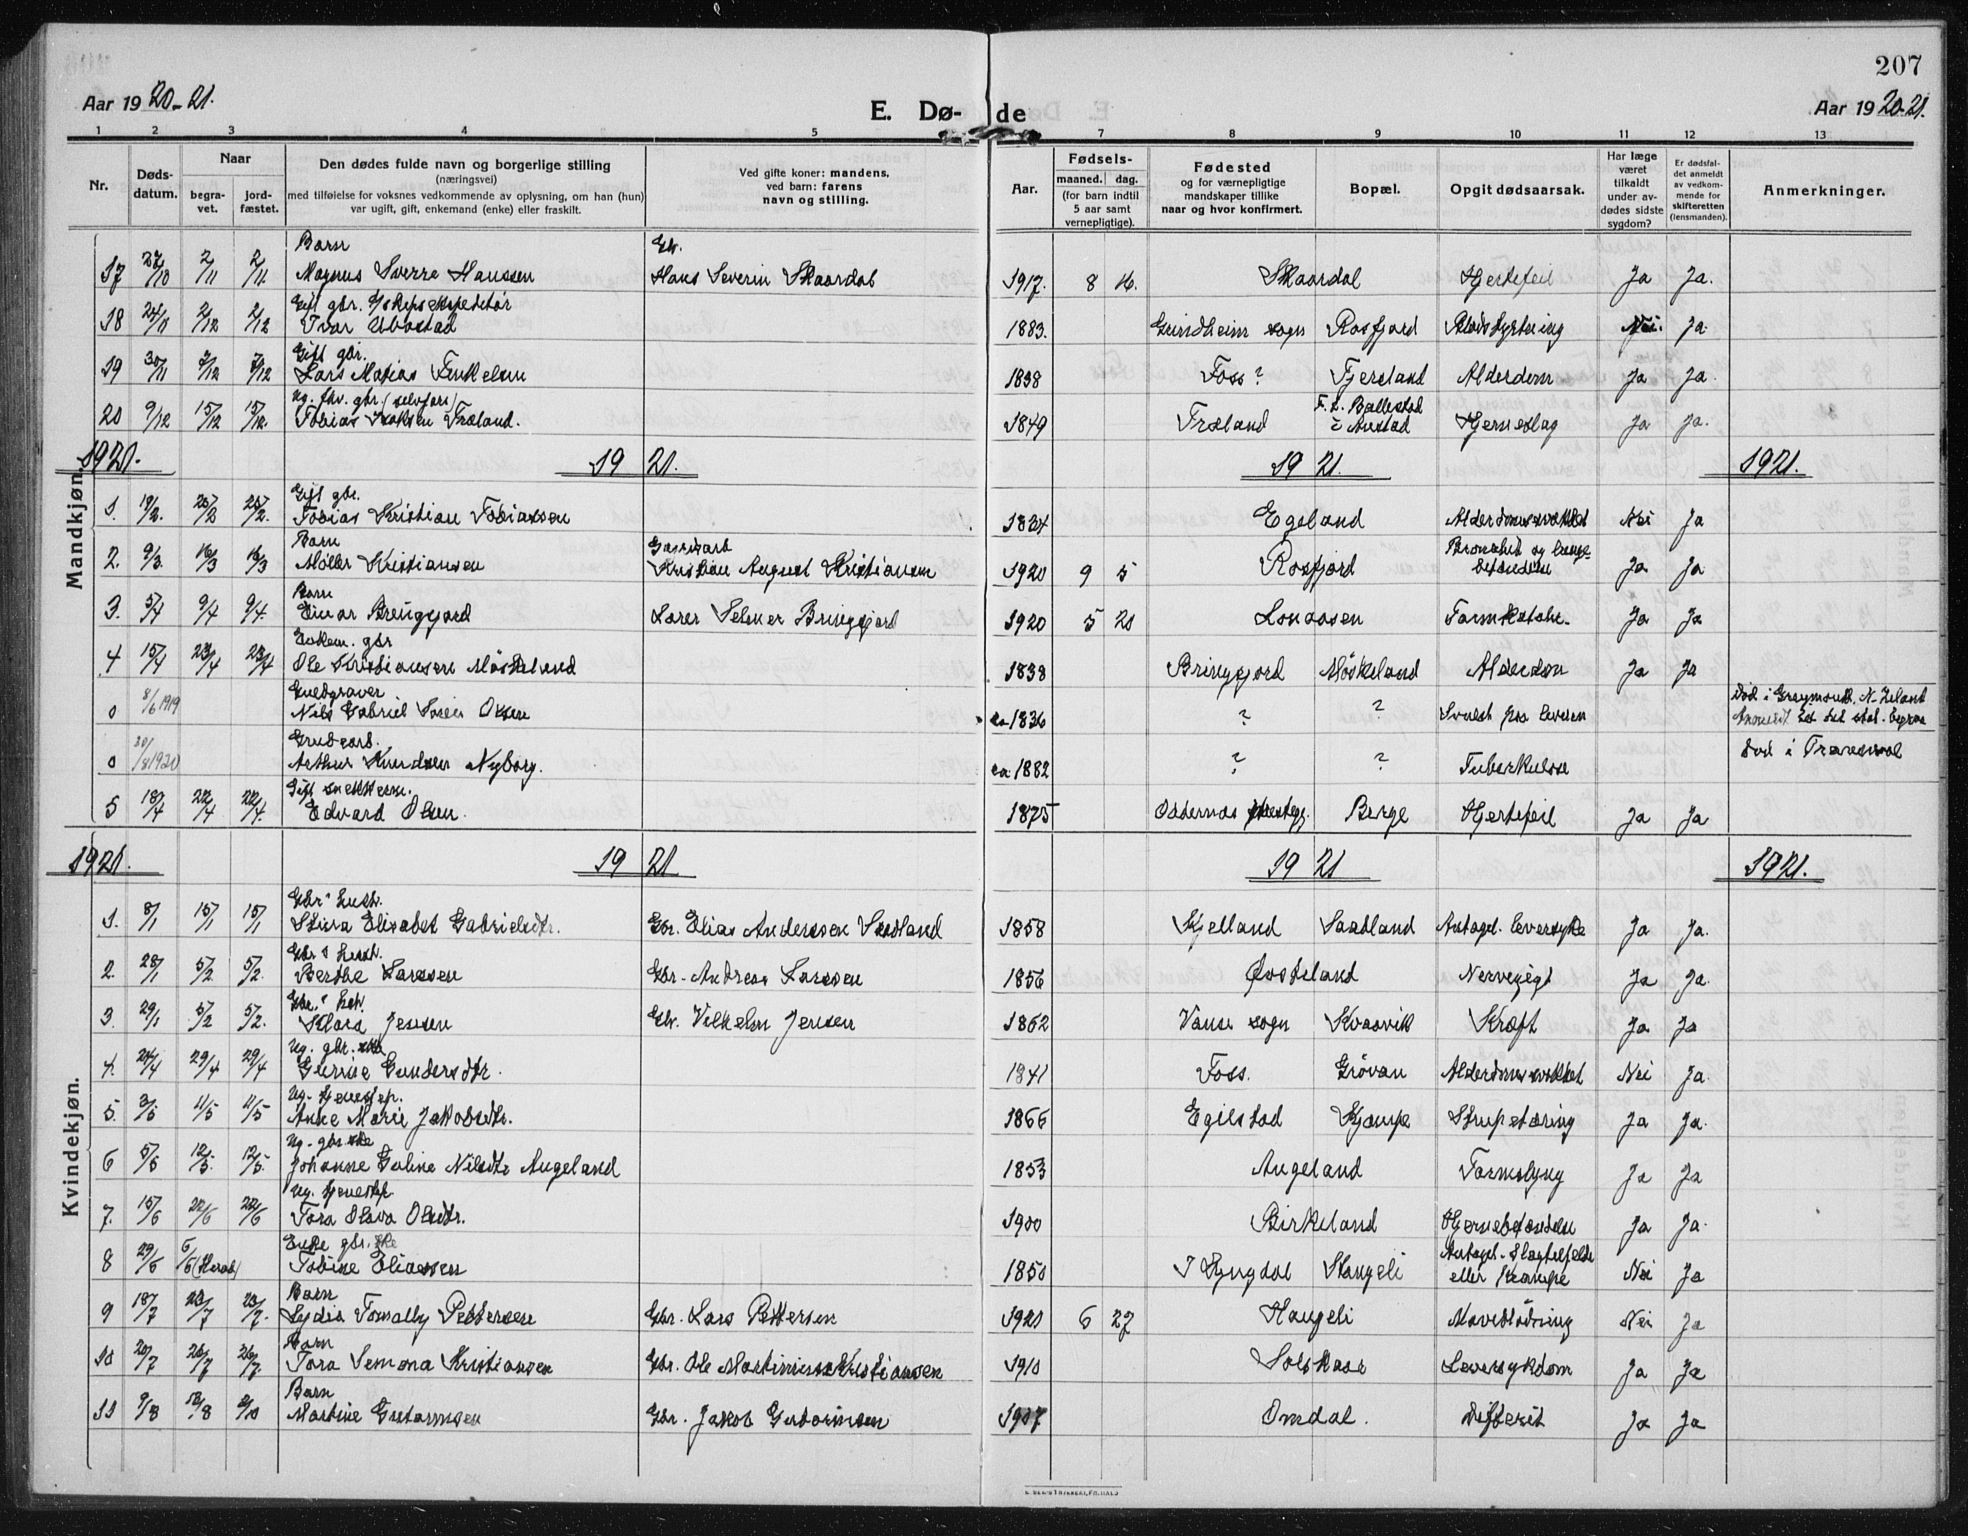 207
Aar 1920-21.
E. Dø-
de
Aar 1920-21.
1 2 3 4 5 7 8 9 10 11 12 13
Nr.
Døds-
datum.
Naar
begra-
vet.
jord-
fæstet.
Den dødes fulde navn og borgerlige stilling
(næringsvei)
med tilføielse for voksnes vedkommende av oplysning, om han (hun)
var ugift, gift, enkemand (enke) eller fraskilt.
Ved gifte koner: mandens,
ved barn: farens
navn og stilling.
Aar.
Fødsels-
maaned. dag.
(for barn indtil
5 aar samt
vernepligtige).
Fødested
og for værnepligtige
mandskaper tillike
naar og hvor konfirmert.
Bopæl.
Opgit dødsaarsak.
Har læge
været
tilkaldt
under av-
dødes sidste
sygdom?
Er dødsfal-
det anmeldt
av vedkom-
mende for
skifteretten
(lensmanden).
Anmerkninger.
Mandkjøn.
Barn
17 27/10 2/11 2/11 Magnus Sverre Hanssen Hans Severin Skaardal 1917. 8 16. Skaardal Hjertefeil Ja Ja.
Gift gbr.
18 24/11 2/12 2/12 Ivar Ubostad 1883. Grindheim sogn Rosfjord Blodstyrtning Nei. Ja.
Gift gbr.
19 30/11 7/12 7/12 Lars Matias 1838 Foss? Fjeseland Alderdom Ja Ja.
Ug. fhv. gbr. F. L. Ballestad
20 9/12 15/12 15/12. Tobias Isaksen Træland. 1849 Træland i Austad Hjerneslag Ja Ja.
1921. 19 21. 19 21. 1921.
Gift gbr.
1. 19/2. 25/2 25/2. Tobias Kristian Tobiassen 1834 Egeland Alderdomssvakhet Nei Ja
Barn Bronchit og lunge-
2. 9/3. 16/3 16/3 Møller Kristiansen Kristian August Kristiansen 1920 9 5 Rosfjord betændelse Ja Ja
Barn
3. 5/4 9/4 9/4. Einar Bringsjord Lærer Selmer Bringsjord 1920 5 21 Lonaasen Tarmkatahr. Ja Ja
Enkem. gbr
4 15/4 23/4 23/4 Ole Kristiansen Møskeland 1838 Bringsjord Møskeland Alderdom Ja Ja
Guldgraver død i Greymouth, N-Zeland
0 8/6 1919 Nils Gabriel Olsen ca 1836 ? ? Svulst paa leveren
Grubearb.
0 30/8 1920 Arthur Knudsen Nyborg. ca 1882 ? ? Tuberkulose død i Transvaal
Gift
5 18/4 22/4 22/4. Edvard Olsen. 1875 Oddernes prestegj. Berge Hjertefeil Ja Ja
1921. 19 21 19 21 1921.
Kvindekjøn.
Gbr. hustr.
1. 8/1 15/1 15/1 Elisabet Gabrielsdtr. Gbr. Elias Anderssen Saadland 1858 Kjelland Saadland Antagel. leversyke Ja Ja.
Gbr.
2. 28/1 5/2 5/2. Berthe Larssen Gbr. Andreas Larssen 1856 Opsteland Nervegigt Ja Ja.
Gbr.
3. 29/1 5/2 5/2. Klara Jensen Gbr. Vilhelm Jensen 1862 Vanse sogn Kvaavik Kræft Ja Ja
Ug. gbr.
4. 24/4 29/4 29/4 Gurine Gundersdtr. 1841 Foss. Grøvan Alderdomssvakhet Nei Ja.
Ug. tjenestep.
5. 3/5 11/5 11/5 Anne Marie Jakobsdtr. 1866 Egilstad Kjæmpe Strupetæring Ja Ja.
Ug. gbr.ske
6 5/5 12/5. 12/5. Johanne Guline Nilsdtr Augeland 1853 Augeland Tarmslyng Ja Ja
Ug. tjenestep.
7. 15/6 22/6 22/6 Tora Olava Olsdtr. 1900 Birkeland Hjernebetændelse Ja Ja.
Enke gbr.ske Antagel. Slagtilfelde
8 29/5 Tobine Eliassen 1850 I Lyngdal Stangeli eller krampe Nei Ja
Barn
9 18/7 23/7 23/7. Lydia Tomally Pettersen Gbr. Lars Pettersen 1920 6 27 Haugeli Navleblødning Nei Ja
Barn
10 20/7 26/7 26/7. Tora Semona Kristiansen Gbr. Ole Martinius Kristiansen 1910 Solskaar Leversykdom Ja Ja
Barn
11 9/8 Martine Gutormsen Gbr. Jakob Gutormsen 1907 Omdal. Difterit Ja Ja